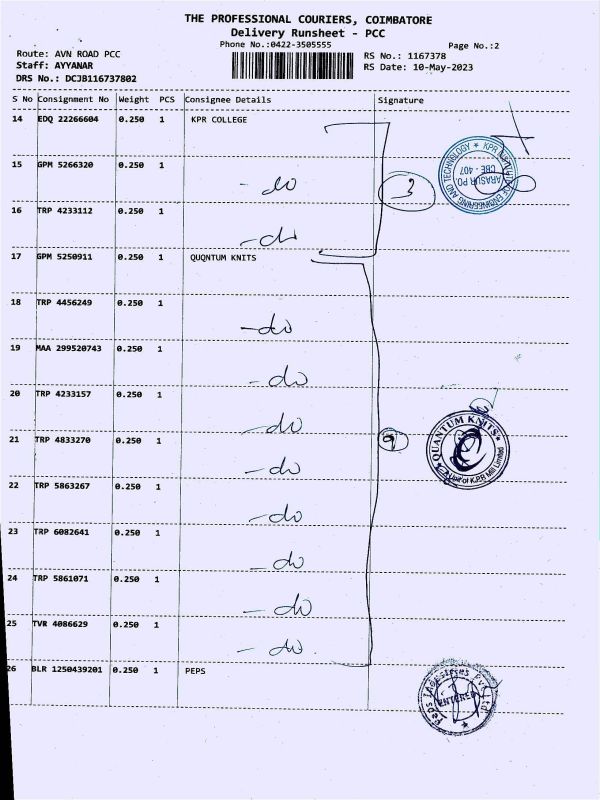 THE PROFESSIONAL COURIERS, COIMBATORE
Delivery Runsheet - PCC
Phone No.:0422-3505555
Page No.:2
Route: AVN ROAD PCC
RS No.: 1167378
Staff: AYYANAR
RS Date: 10-May-2023
DRS No.: DCJB116737802
S No Consignment No Weight PCS Consignee Details Signature
14 EDQ 22266604 0.250 1 KPR COLLEGE
15 GPM 5266320 0.250 1 - do
16 TRP 4233112 0.250 1 - do
3
KPR INSTITUTE OF ENGINEERING AND TECHNOLOGY
ARASUR PO
CBE - 407
17 GPM 5250911 0.250 1 QUQNTUM KNITS
18 TRP 4456249 0.250 1 - do
19 MAA 299520743 0.250 1 - do
20 TRP 4233157 0.250 1 - do
21 TRP 4833270 0.250 1 - do
22 TRP 5863267 0.250 1 - do
23 TRP 6082641 0.250 1 - do
24 TRP 5861071 0.250 1 - do
25 TVR 4086629 0.250 1 - do
9
QUANTUM KNITS
Unit of K.P.R Mill Limited
26 BLR 1250439201 0.250 1 PEPS
Peps Industries Pvt Ltd
ENTERED